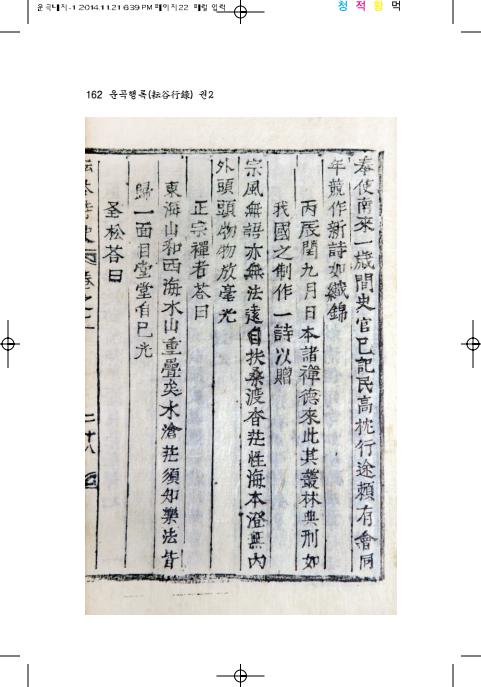 운곡내지-1 2014.11.21 6:39 PM 페이지22 매킬 입력
청 적 황 먹
162 운곡행록(耘谷行錄) 권2
奉使南來一歲間史官已記民高枕行途頼有會同
年競作新詩如織錦
丙辰閏九月日本諸禪德來此其叢林典刑如
我國之制作一詩以贈
宗風無語亦無法遠自扶桑渡杳茫性海本澄無內
外頭頭物物放毫光
正宗禪者荅曰
東海山和西海水山重疊矣水滄茫須知樂法皆
歸一面目堂堂自己光
圣松荅曰
耘谷詩史卷之二
二十八